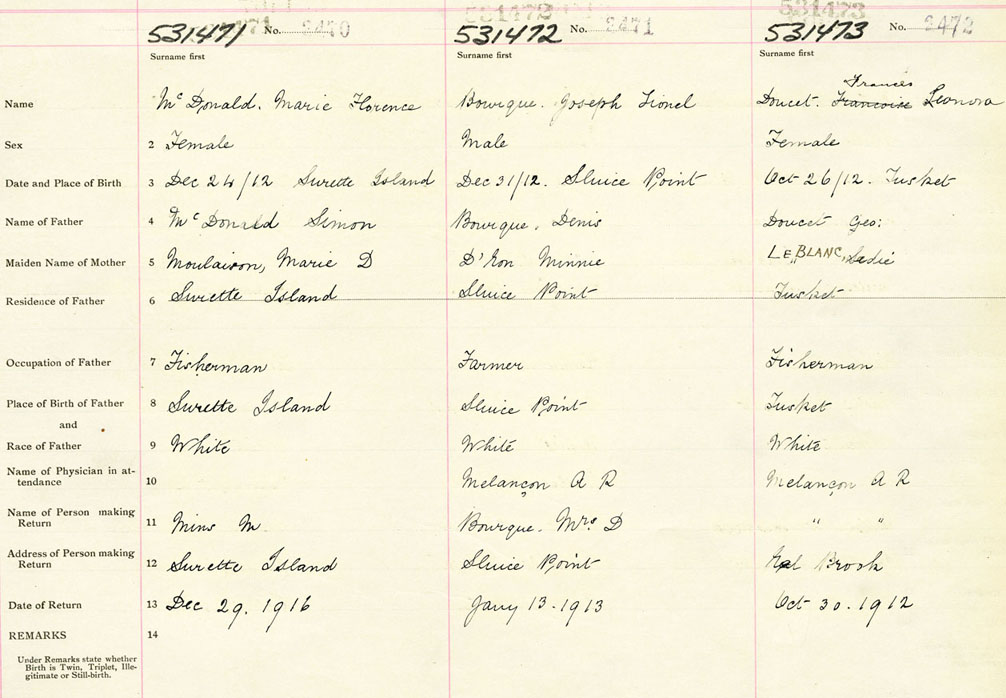 531471 No. 2470 531472 No. 2471 531473 No. 2472
Surname first Surname first Surname first
Frances
Name McDonald. Marie Florence Bourque. Joseph Lionel Doucet. Francoise Leonora
Sex 2 Female Male Female
Date and Place of Birth 3 Dec 24/12 Surette Island Dec 31/12. Sluice Point Oct 26/12. Tusket
Name of Father 4 McDonald Simon Bourque, Denis Doucet Geo:
Maiden Name of Mother 5 Moulaison, Marie D D'Eon Minnie LEBLANC, Sadie
Residence of Father 6 Surette Island Sluice Point Tusket
Occupation of Father 7 Fisherman Farmer Fisherman
Place of Birth of Father 8 Surette Island Sluice Point Tusket
and
Race of Father 9 White White White
Name of Physician in at-
tendance 10 Melançon A R Melançon A R
Name of Person making
Return 11 Mins M Bourque. Mrs D " "
Address of Person making
Return 12 Surette Island Sluice Point Brook
Date of Return 13 Dec 29. 1916 Jany 13-1913 Oct 30-1912
REMARKS 14
Under Remarks state whether
Birth is Twin, Triplet, Ille-
gitimate or Still-birth.